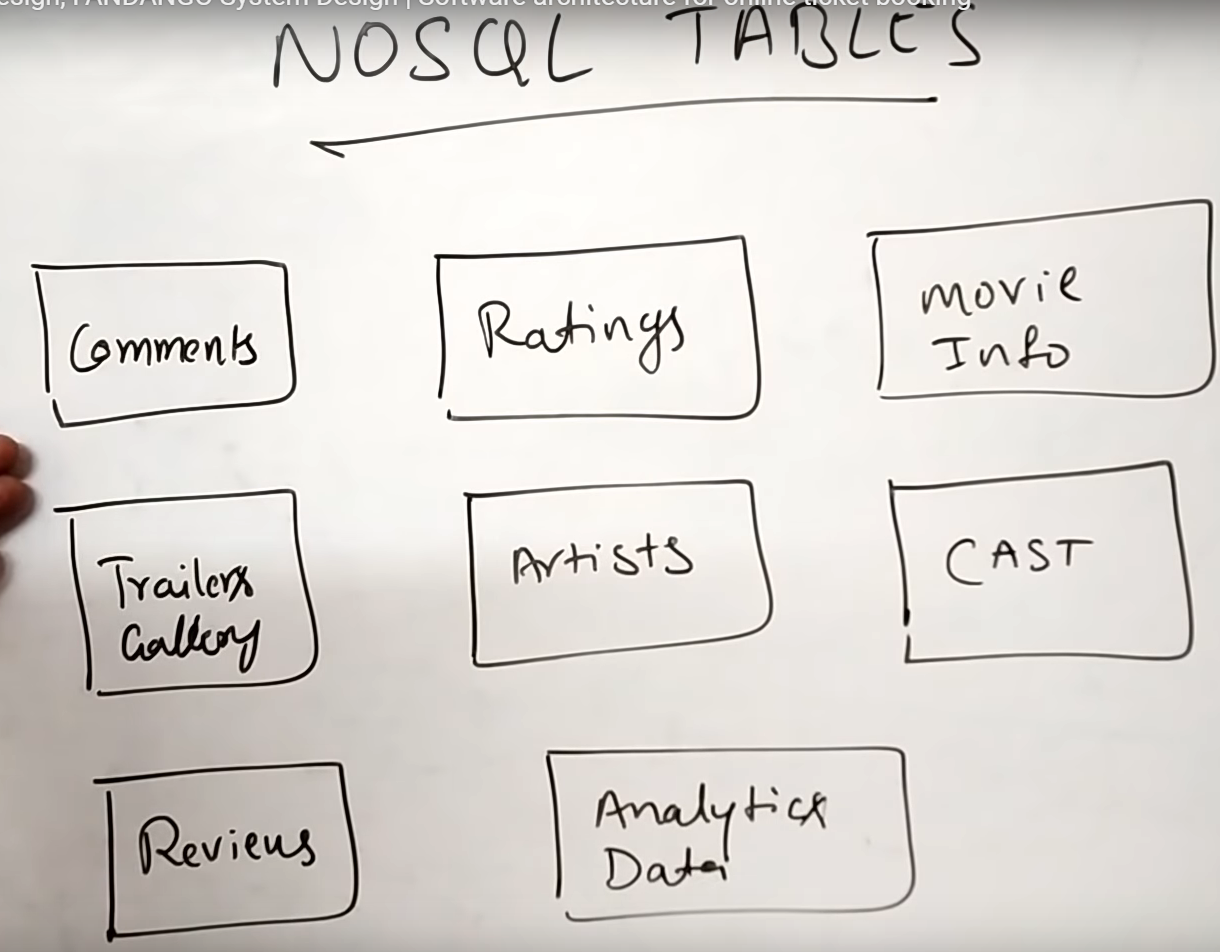 esign, FANDANGO System Design | Software architecture for online ticket booking
NOSQL TABLES
Comments
Ratings
Movie
Info
Trailers
Gallery
Artists
CAST
Reviews
Analytics
Data